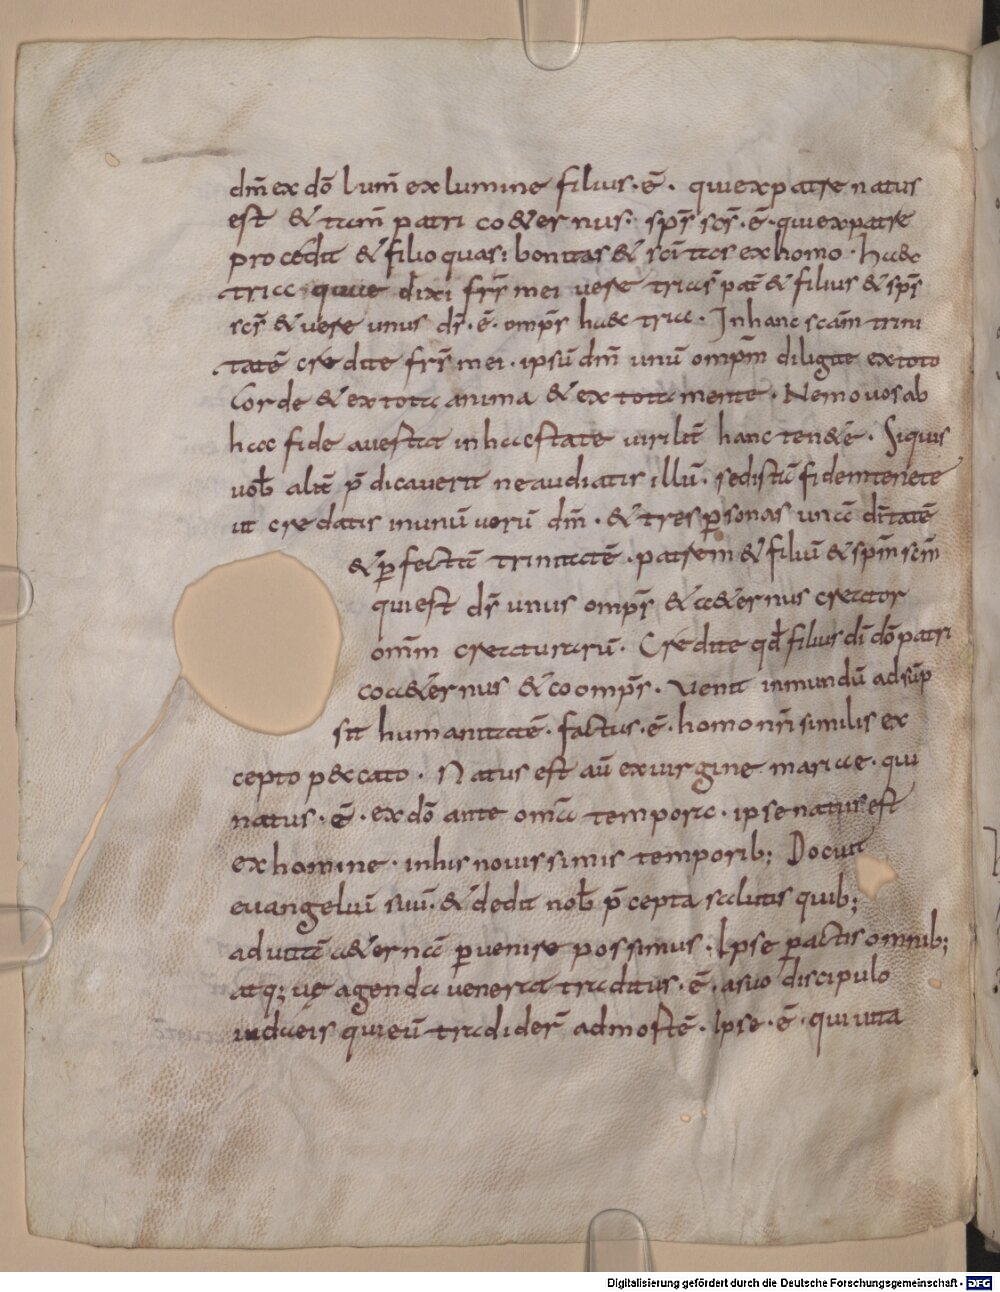 dm̄ ex dō lum̄ ex lumine filius·ē· qui ex patre natus
est & tam̄ patri co&ernus: sp̄s sc̄s·ē·qui ex patre
procedit & filio quasi bonitas & sc̄itas ex homo· haec
tria quae dixi frs̄ mei vere tria s̄ pat̄ & filius & sp̄s
sc̄s & vere unus ds̄·ē·omp̄s haec tria· In hanc scām trini
tatē credite frs̄ mei· ipsū dm̄ unū omp̄m diligite ex toto
corde & ex tota anima & ex tota mente· Nemo vos ab
hac fide avertat in hac state virilit̄ hanc ten&e· Siquis
vob̄ alit̄ p̄dicaverit ne audiatis illū· sed istā fidem tenete
ut credatis in unū verū dm̄· & tres personas una di̅tatē
& perfectā trinitatē· patrem & filiū & sp̄m sc̄m
qui est ds̄ unus omp̄s & a&ernus creator
om̄m creaturarū· Credite qd̄ filius di̅ dō patri
coa&ernus & coomp̄s· venit in mundū adsūp
sit humanitatē· factus·ē·homo nr̄i similis ex
cepto peccato· Natus est aū ex virgine mariae· qui
natus·ē·ex dō ante omā tempora· ipse natus est
ex homine· in his novissimis temporib; Docuit
evangeliū suū·& dedit nob̄ p̄cepta salutis quib;
ad vitā a&ernā pervenire possimus· Ipse peractis omnib;
atq; agenda venerat traditus·ē·a suo discipulo
iudaeis qui eū tradider̄ ad mortē· Ipse·ē·qui vita
Digitalisierung gefördert durch die Deutsche Forschungsgemeinschaft - DFG